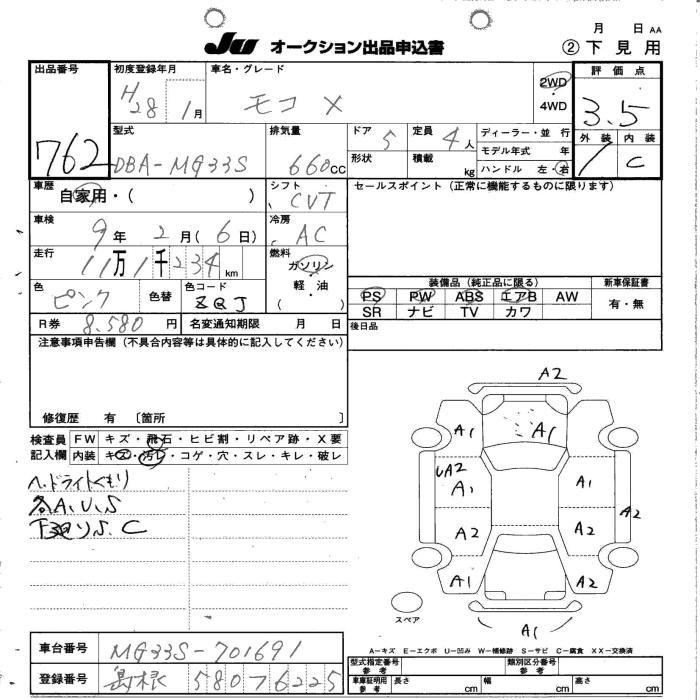 月 日 AA
Ju オークション出品申込書 ② 下見用
出品番号 762
初度登録年月 H28 1月
車名・グレード モコ X
2WD・4WD
評価点 3.5
型式 DBA-MG33S
排気量 660cc
ドア 5
定員 4人
形状
積載 kg
ディーラー・並行
モデル年式 年
ハンドル 左・右
外装 内装
C
車歴 自家用・( )
シフト CVT
セールスポイント(正常に機能するものに限ります)
車検 9年 2月(6日)
冷房 AC
走行 11万1千234km
燃料 ガソリン・軽油・( )
色 ピンク 色替
色コード ZQJ
装備品(純正品に限る) 新車保証書
PS PW ABS エアB AW 有・無
SR ナビ TV カワ
R券 8,580円 名変通知期限 月 日
後日品
注意事項申告欄(不具合内容等は具体的に記入してください)
修復歴 有 〔箇所 〕
検査員記入欄
FW キズ・飛石・ヒビ割・リペア跡・X要
内装 キズ・汚レ・コゲ・穴・スレ・キレ・破レ
ヘッドライトくもり
各A.U.S
下廻りS.C
A2
A1 A1
UA2
A1 A1
A2 A2 A2
A1 A2
スペア
A1
A-キズ E-エクボ U-凹み W-補修跡 S-サビ C-腐食 XX-交換済
車台番号 MG33S-701691
登録番号 島根 580 7 6225
型式指定番号 参考
類別区分番号 参考
車庫証明用 参考 長さ cm 幅 cm 高さ cm